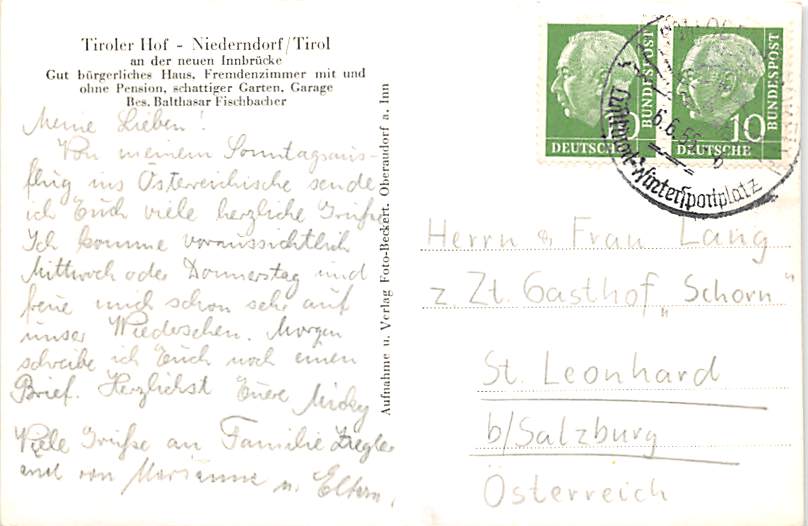 Tiroler Hof – Niederndorf/Tirol
an der neuen Innbrücke
Gut bürgerliches Haus, Fremdenzimmer mit und
ohne Pension, schattiger Garten, Garage
Bes. Balthasar Fischbacher
Meine Lieben!
Von meinem Sonntagsaus-
flug ins Österreichische sende
ich Euch viele herzliche Grüße.
Ich komme voraussichtlich
Mittwoch oder Donnerstag und
freue mich schon sehr auf
unser Wiedersehen. Morgen
schreibe ich Euch noch einen
Brief. Herzlichst Euere Micky
Viele Grüße an Familie Ziegler
und von Marianne u. Eltern.
Aufnahme u. Verlag Foto-Beckert, Oberaudorf a. Inn
BUNDESPOST
10
DEUTSCHE
BUNDESPOST
10
DEUTSCHE
6.6.56
Luftkurort-Wintersportplatz
Herrn & Frau Lang
z Zt. Gasthof „Schorn"
St. Leonhard
b/Salzburg
Österreich